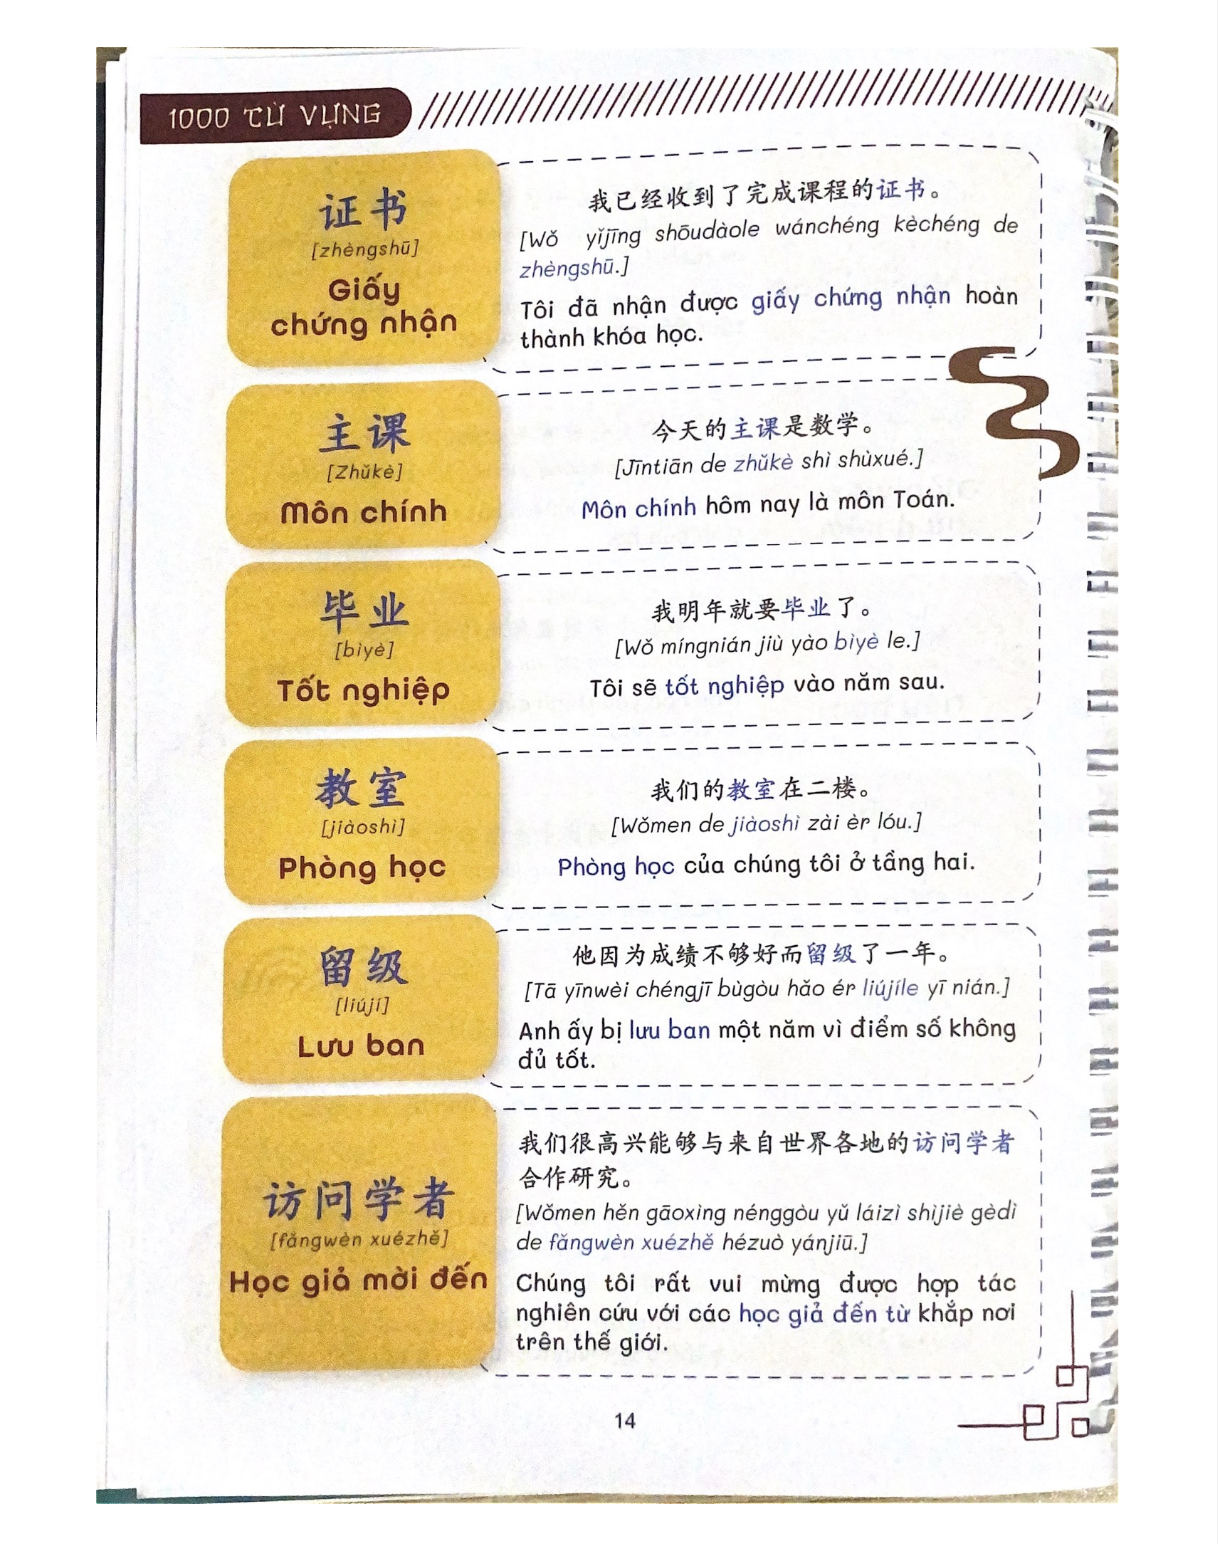 1000 TỪ VỰNG
证书
[zhèngshū]
Giấy
chứng nhận
我已经收到了完成课程的证书。
[Wǒ yǐjīng shōudàole wánchéng kèchéng de
zhèngshū.]
Tôi đã nhận được giấy chứng nhận hoàn
thành khóa học.
主课
[Zhǔkè]
Môn chính
今天的主课是数学。
[Jīntiān de zhǔkè shì shùxué.]
Môn chính hôm nay là môn Toán.
毕业
[bìyè]
Tốt nghiệp
我明年就要毕业了。
[Wǒ míngnián jiù yào bìyè le.]
Tôi sẽ tốt nghiệp vào năm sau.
教室
[jiàoshì]
Phòng học
我们的教室在二楼。
[Wǒmen de jiàoshì zài èr lóu.]
Phòng học của chúng tôi ở tầng hai.
留级
[liújí]
Lưu ban
他因为成绩不够好而留级了一年。
[Tā yīnwèi chéngjī bùgòu hǎo ér liújíle yī nián.]
Anh ấy bị lưu ban một năm vì điểm số không
đủ tốt.
访问学者
[fǎngwèn xuézhě]
Học giả mời đến
我们很高兴能够与来自世界各地的访问学者
合作研究。
[Wǒmen hěn gāoxìng nénggòu yǔ láizì shìjiè gèdì
de fǎngwèn xuézhě hézuò yánjiū.]
Chúng tôi rất vui mừng được hợp tác
nghiên cứu với các học giả đến từ khắp nơi
trên thế giới.
14